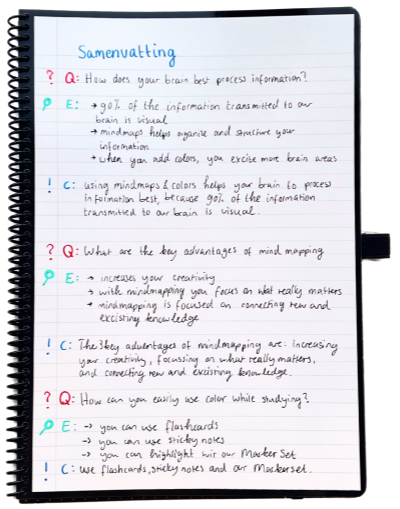 Samenvatting
? Q: How does your brain best process information?
E: → 90% of the information transmitted to our
brain is visual
→ mindmaps helps organize and structure your
information
→ when you add colors, you excite more brain areas
! C: using mindmaps & colors helps your brain to process
information best, because 90% of the information
transmitted to our brain is visual.
? Q: What are the key advantages of mind mapping
E: → increases your creativity
→ with mindmapping you focus on what really matters
→ mindmapping is focused on connecting new and
excisting knowledge
! C: The 3 key advantages of mindmapping are: Increasing
your creativity, focussing on what really matters,
and connecting new and excisting knowledge.
? Q: How can you easily use color while studying?
E: → you can use flashcards
→ you can use sticky notes
→ you can highlight our Marker Set
! C: use flashcards, sticky notes and our Markerset.